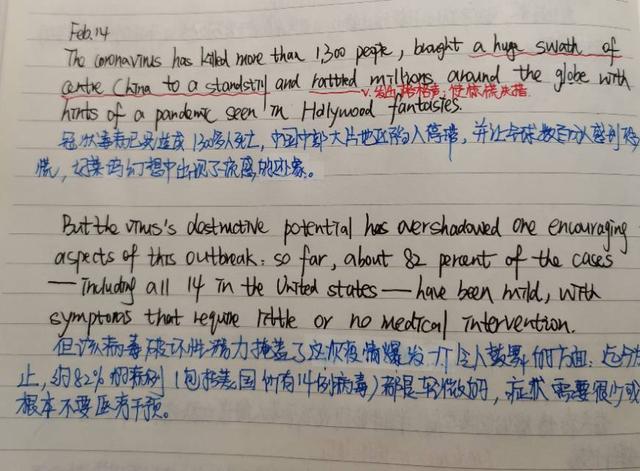 Feb.14
The coronavirus has killed more than 1,300 people, brought a huge swath of
centre China to a standstill and rattled millions around the globe with
v. 发出格格声; 使惊慌失措
hints of a pandemic seen in Hollywood fantasies.
冠状病毒已经造成1300多人死亡,中国中部大片地区陷入停滞,并让全球数百万人感到恐
慌,好莱坞幻想中出现了流感的迹象。
But the virus's destructive potential has overshadowed one encouraging
aspects of this outbreak: so far, about 82 percent of the cases
— including all 14 in the United states — have been mild, with
symptoms that require little or no medical intervention.
但该病毒破坏性潜力掩盖了这次疫情爆发一个令人鼓舞的方面:迄今为
止,约82%的病例(包括美国所有14例病毒)都是轻微的,症状需要很少或
根本不要医疗干预。